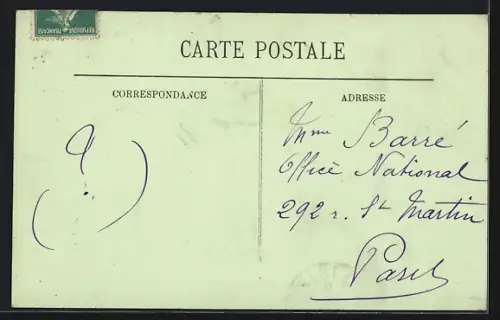 REPUBLIQUE FRANÇAISE
CARTE POSTALE
CORRESPONDANCE
ADRESSE
( ? )
Mme Barré
Office National
292 r. St Martin
Paris